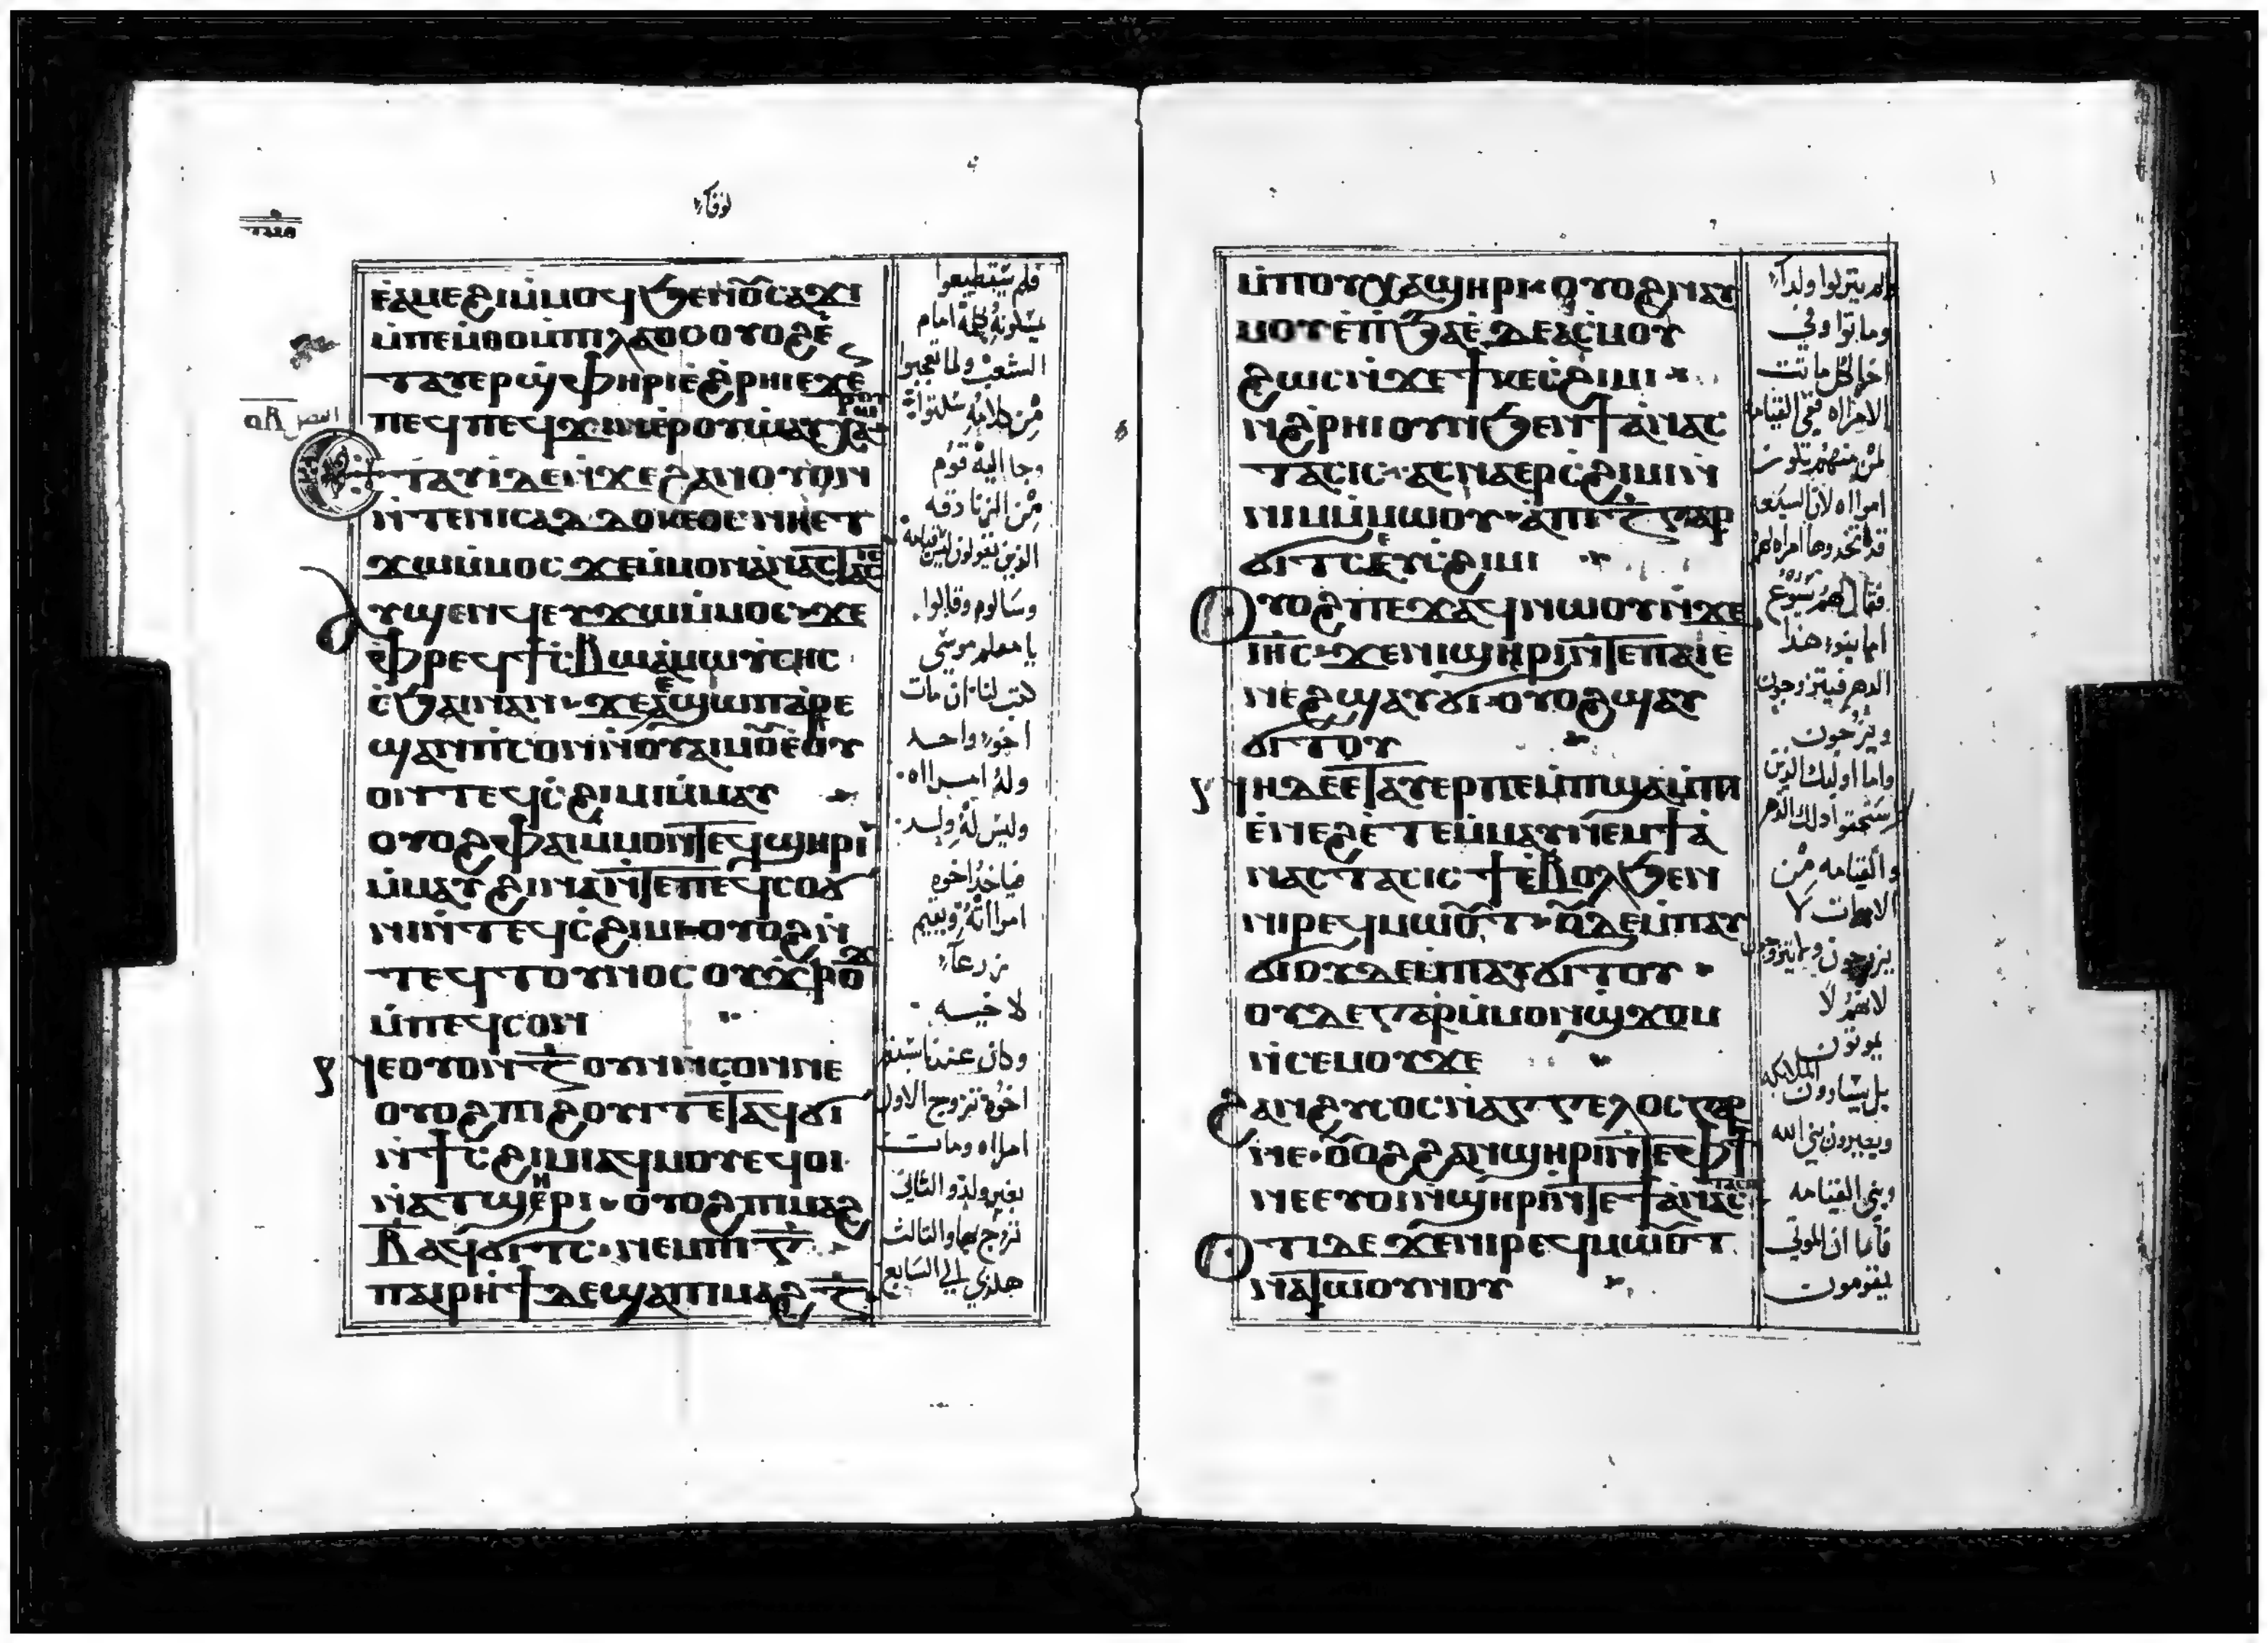 لوقا
ⲉⲁⲙⲉϩⲓⲙⲙⲟϥϧⲉⲛⲟⲥⲁϫⲓ
ⲙⲡⲉⲙⲑⲟⲙⲡⲓⲗⲁⲟⲥⲟⲩⲟϩⲉ
ⲧⲁⲩⲉⲣϣⲫⲏⲣⲓⲉϩⲣⲏⲓⲉϫⲉ
ⲡⲉϥⲡⲉϥϫⲓⲛⲉⲣⲟⲩⲱⲁⲩⲭⲁ
ⲣⲱⲟⲩ
ⲧⲁⲩⲓⲇⲉⲛϫⲉϩⲁⲛⲟⲩⲟⲛ
ⲛⲧⲉⲛⲓⲥⲁⲇⲇⲟⲕⲉⲟⲥⲛⲏⲉⲧ
ϫⲱⲙⲙⲟⲥϫⲉⲙⲙⲟⲛⲁⲛⲁⲥⲧⲁⲥⲓⲥ
ⲁⲩϣⲉⲛϥⲉⲩϫⲱⲙⲙⲟⲥϫⲉ
ⲫⲣⲉϥϯⲥⲃⲱⲁⲙⲱⲩⲥⲏⲥ
ⲥϧⲁⲓⲛⲁⲛϫⲉⲉϣⲱⲡⲁⲣⲉ
ϣⲁⲛⲡⲥⲟⲛⲛⲟⲩⲁⲓⲙⲟⲩⲉⲟⲩ
ⲟⲛⲧⲉϥⲥϩⲓⲙⲓⲙⲙⲁⲩ
ⲟⲩⲟϩⲫⲁⲓⲙⲙⲟⲛⲧⲉϥϣⲏⲣⲓ
ⲙⲙⲁⲩϩⲓⲛⲁⲛⲧⲉⲡⲉϥⲥⲟⲛϭ
ⲓⲛⲧⲉϥⲥϩⲓⲙⲓⲟⲩⲟϩⲛ
ⲧⲉϥⲧⲟⲩⲛⲟⲥⲟⲩϫⲣⲟϫ
ⲙⲡⲉϥⲥⲟⲛ
ⲛⲉⲟⲩⲟⲛⲍⲟⲩⲛⲛⲥⲟⲛⲛⲉ
ⲟⲩⲟϩⲡⲓϩⲟⲩⲓⲧⲉⲧⲁϥϭⲓ
ⲛϯⲥϩⲓⲙⲓⲁϥⲙⲟⲩⲉϥⲟⲓ
ⲛⲁⲧϣⲏⲣⲓⲟⲩⲟϩⲡⲓⲙⲁϩ
ⲃⲁϥϭⲓⲧⲥⲛⲉⲙⲡⲓⲅ
ⲡⲁⲓⲣⲏϯⲇⲉϣⲁⲡⲓⲙⲁϩⲍ
فلم يستطيعوا
يمسكونه كلمة امام
الشعب ولما تعجبوا
من كلامه سكتوا
وجا اليه قوم
من الزنادقه
الذين يقولون ليس قيامه
وسالوه وقالوا
يا معلم موسى
كتب لنا ان مات
اخوه واحد
وله امراه
وليس له ولد
فياخذ اخوه
امراته ويقيم
زرعا
لاخيه
وكان عندنا سبعه
اخوة تزوج الاول
امراه ومات
بغير ولد والثاني
تزوج بها والثالث
هكذي الي السابع
ⲙⲡⲟⲩⲭⲁϣⲏⲣⲓⲟⲩⲟϩⲛⲁⲩ
ⲙⲟⲩⲉⲡϧⲁⲉⲇⲉⲁⲥⲙⲟⲩ
ϩⲱⲥⲛϫⲉϯⲕⲉⲥϩⲓⲙⲓ
ⲛϩⲣⲏⲓⲟⲩⲛϧⲉⲛϯⲁⲛⲁⲥ
ⲧⲁⲥⲓⲥⲁⲥⲛⲁⲉⲣⲥϩⲓⲙⲓⲛ
ⲛⲓⲙⲙⲙⲱⲟⲩⲁⲡⲓⲍⲅⲁⲣ
ϭⲓⲧⲥⲉⲩⲥϩⲓⲙⲓ
ⲟⲩⲟϩⲡⲉϫⲁϥⲛⲱⲟⲩⲛϫⲉ
ⲓⲏⲥϫⲉⲛⲓϣⲏⲣⲓⲛⲧⲉⲡⲁⲓⲉ
ⲛⲉϩϣⲁⲩϭⲓⲟⲩⲟϩϣⲁⲩ
ϭⲓⲧⲟⲩ
ⲛⲏⲇⲉⲉⲧⲁⲩⲉⲣⲡⲉⲙⲡϣⲁⲙⲡⲓ
ⲉⲛⲉϩⲉⲧⲉⲙⲙⲁⲩⲛⲉⲙϯⲁ
ⲛⲁⲥⲧⲁⲥⲓⲥϯⲉⲃⲟⲗϧⲉⲛ
ⲛⲓⲣⲉϥⲙⲱⲟⲩⲧⲟⲩⲇⲉⲙⲡⲁⲩ
ϭⲓⲟⲩⲇⲉⲙⲡⲁⲩϭⲓⲧⲟⲩ
ⲟⲩⲇⲉⲅⲁⲣⲙⲙⲟⲛϣϫⲟⲙ
ⲛⲥⲉⲙⲟⲩϫⲉ
ϩⲁⲛϩⲩⲥⲟⲥⲛⲁⲅⲅⲉⲗⲟⲥⲅⲁⲣ
ⲛⲉⲟⲩⲟϩϩⲁⲛϣⲏⲣⲓⲛⲧⲉⲫϯ
ⲛⲉⲉⲩⲟⲓⲛϣⲏⲣⲓⲛⲧⲉϯⲁⲛⲁⲥⲧⲁⲥⲓⲥ
ⲟⲧⲓⲇⲉϫⲉⲛⲓⲣⲉϥⲙⲱⲟⲩⲧ
ⲛⲁⲧⲱⲟⲩⲛⲟⲩ
ولم يتركوا ولدا
وماتوا وفي
اخر الكل ماتت
الامراه ففي القيامه
لمن منهم تكون
امراه لان السبعه
قد اتخدوها امراه لهم
فقال لهم يسوع
اما بنو هذا
الدهر فيتزوجون
ويزوجون
واما اوليك الذين
استحقوا دلك الدهر
والقيامه من
الاموات لا
يزوجون ولا يتزوجون
لانهم لا
يموتون
بل يساوون الملايكه
ويصيرون بني الله
وبني القيامه
فاما ان الموتي
يقومون